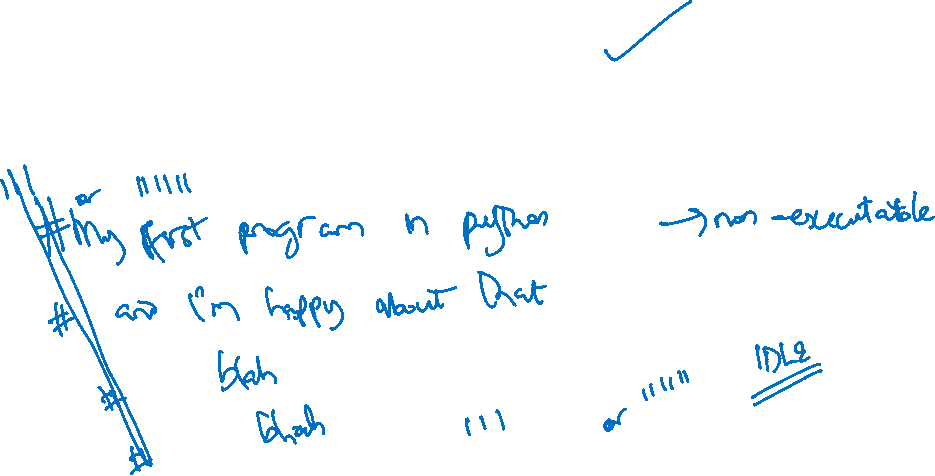 ''' or """
# My first program in python → non-executable
# and I'm happy about that
# blah
# bhah ''' or """
IDLE